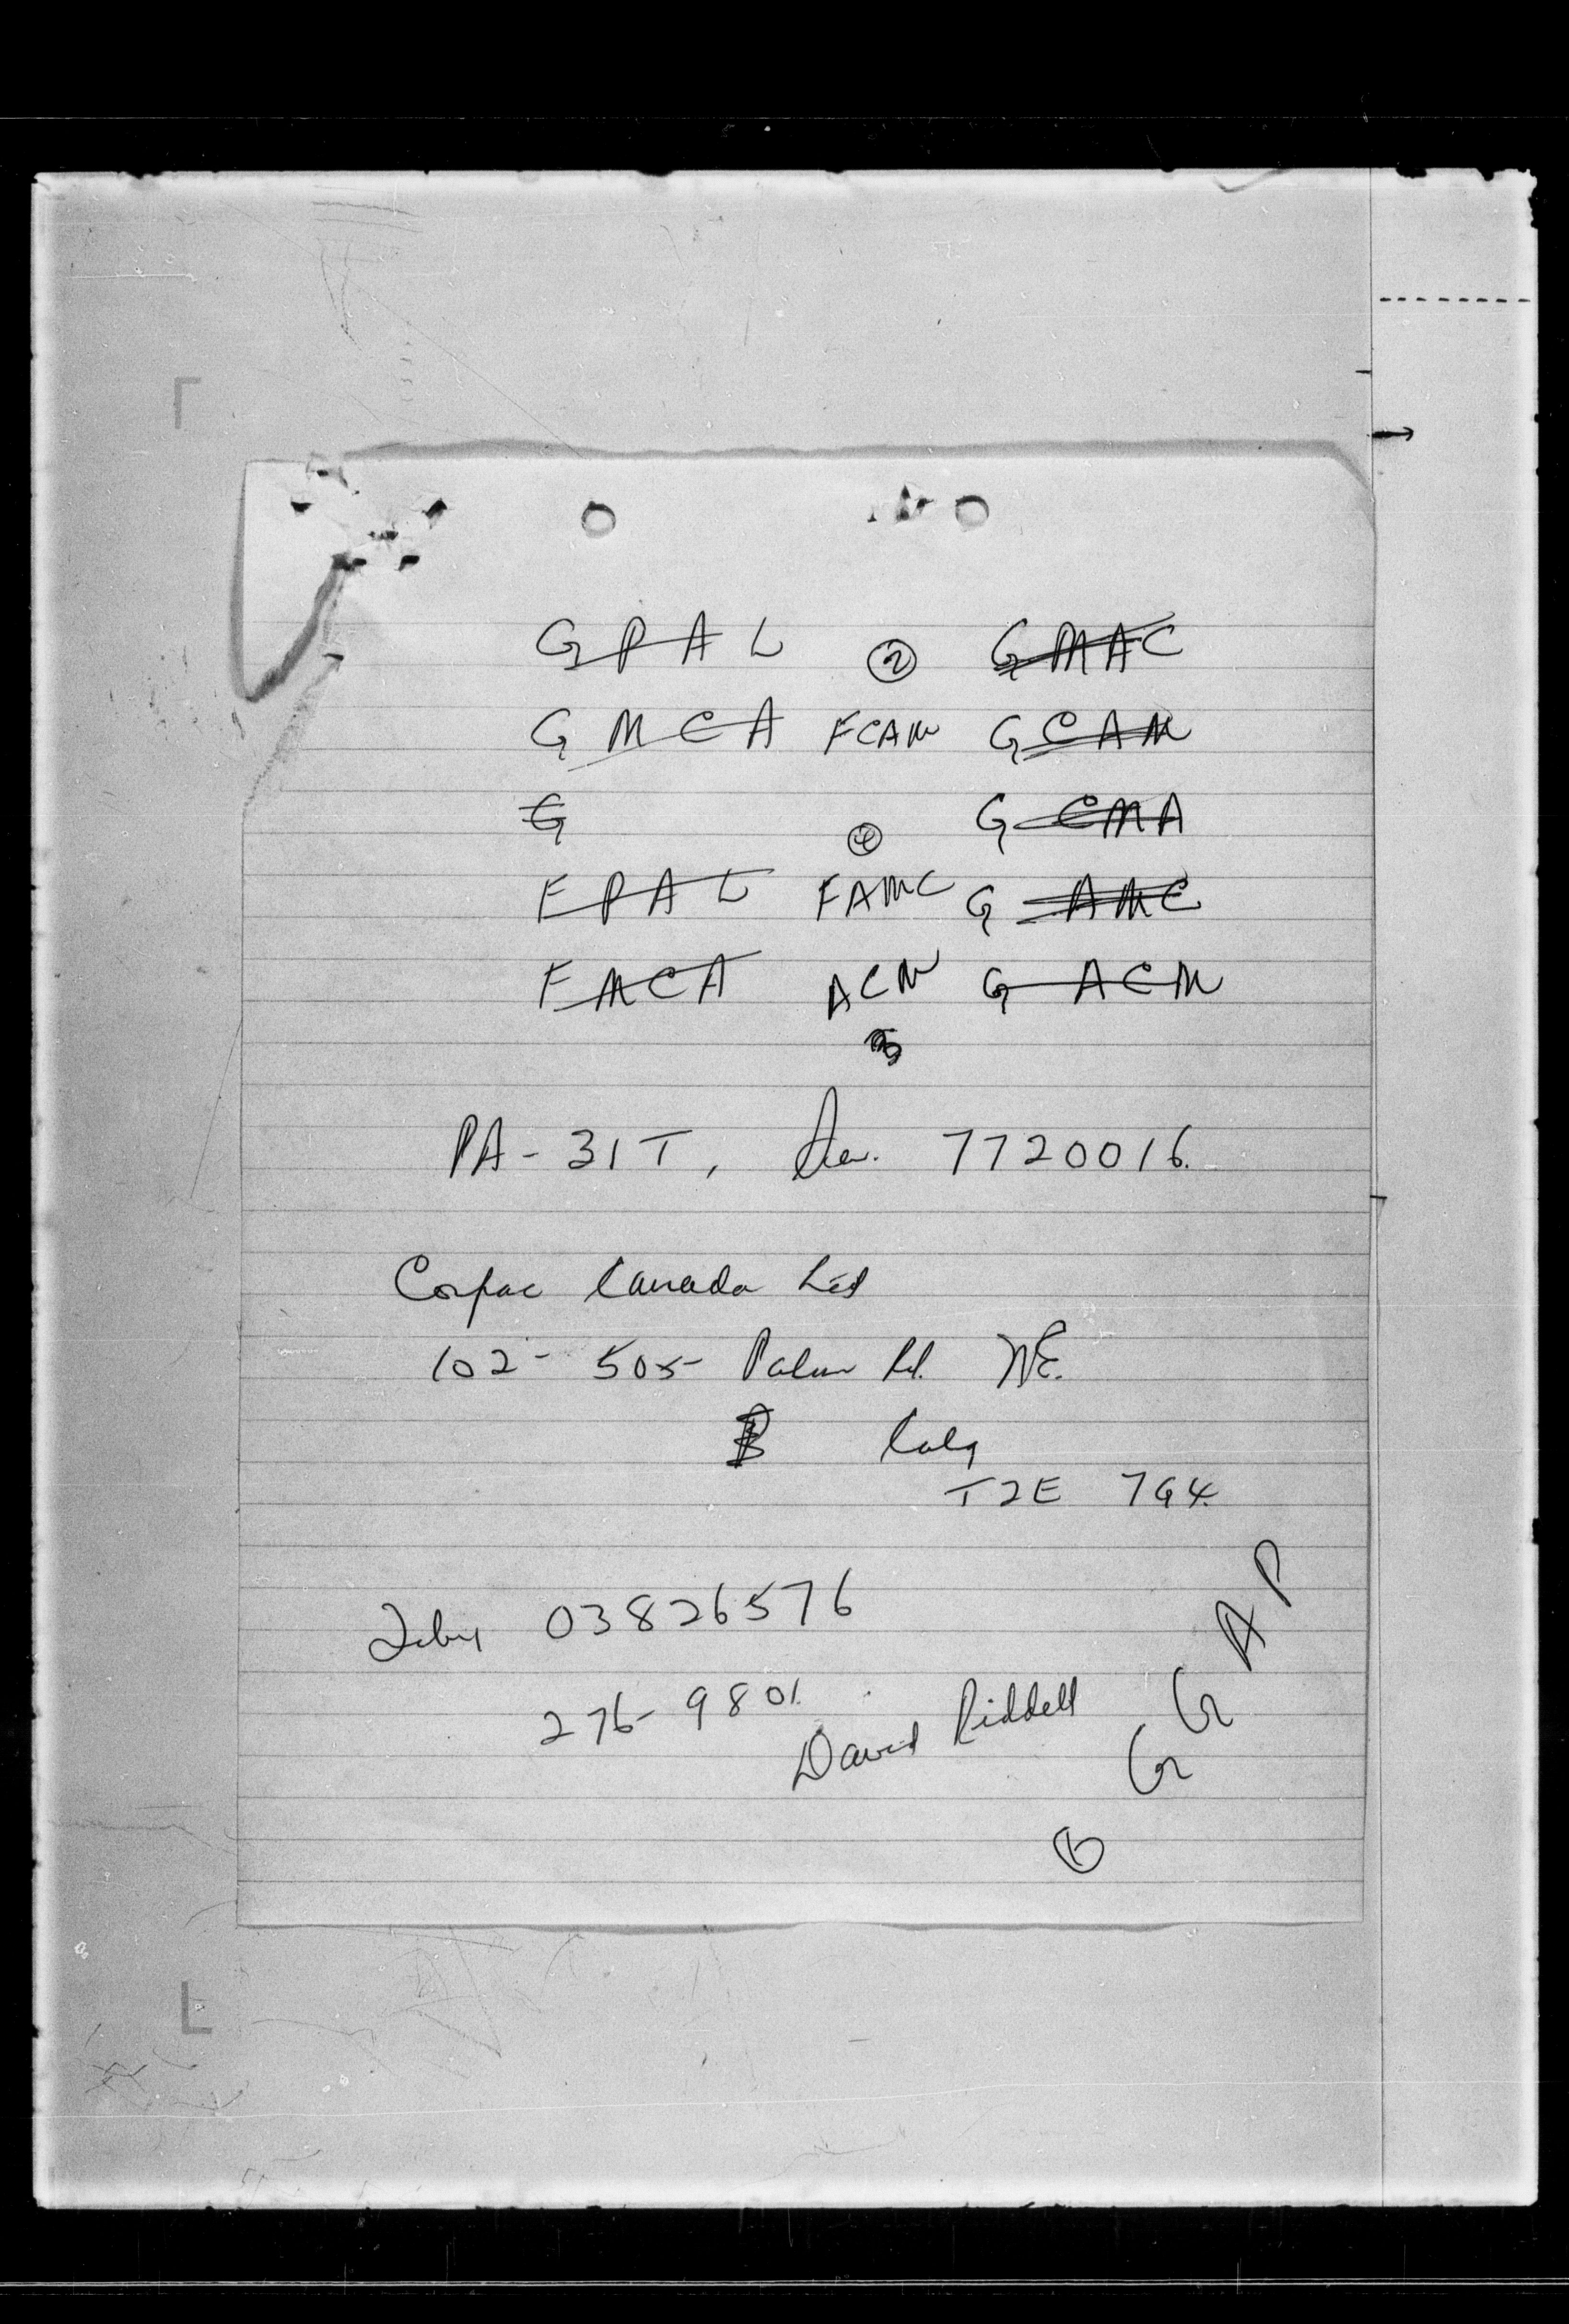 GPAL ② GMAC
GMCA FCAM GCAM
G G CMA
④
FPAL FAMC G AMC
FMCA ACM G ACM
3
PA-31T, Ser. 7720016.
Corpac Canada Ltd
102- 505- Palmer Rd. NE.
B Calg
T2E 7G4.
03826576
276-9801.
David Riddell
① GGAP